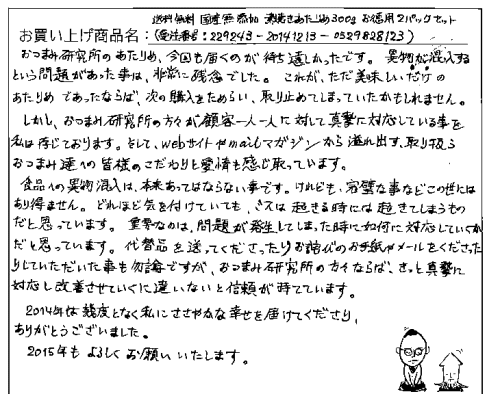 送料無料 国産無添加 浜焼きあたりめ300g お徳用2パックセット
お買い上げ商品名：(受注番号：229243-20141213-0529828123)
おつまみ研究所のあたりめ、今回も届くのが待ち遠しかったです。異物が混入する
という問題があった事は、非常に残念でした。これが、ただ美味しいだけの
あたりめであったならば、次の購入をためらい、取り止めてしまっていたかもしれません。
しかし、おつまみ研究所の方々が顧客一人一人に対して真摯に対応している事を
私は存じております。そして、webサイトやmailマガジンから溢れ出す、取り扱う
おつまみ達への皆様のこだわりと愛情も感じ取っています。
食品への異物混入は、本来あってはならない事です。けれども、完璧な事などこの世には
あり得ません。どれほど気を付けていても、ミスは起きる時には起きてしまうもの
だと思っています。重要なのは、問題が発生してしまった時に如何に対応していくか
だと思っています。代替品を送ってくださったりお詫びのお手紙やメールをくださった
りしていただいた事も勿論ですが、おつまみ研究所の方々ならば、きっと真摯に
対応し改善させていくに違いないと信頼が持てています。
2014年は幾度となく私にささやかな幸せを届けてくださり、
ありがとうございました。
2015年もよろしくお願いいたします。